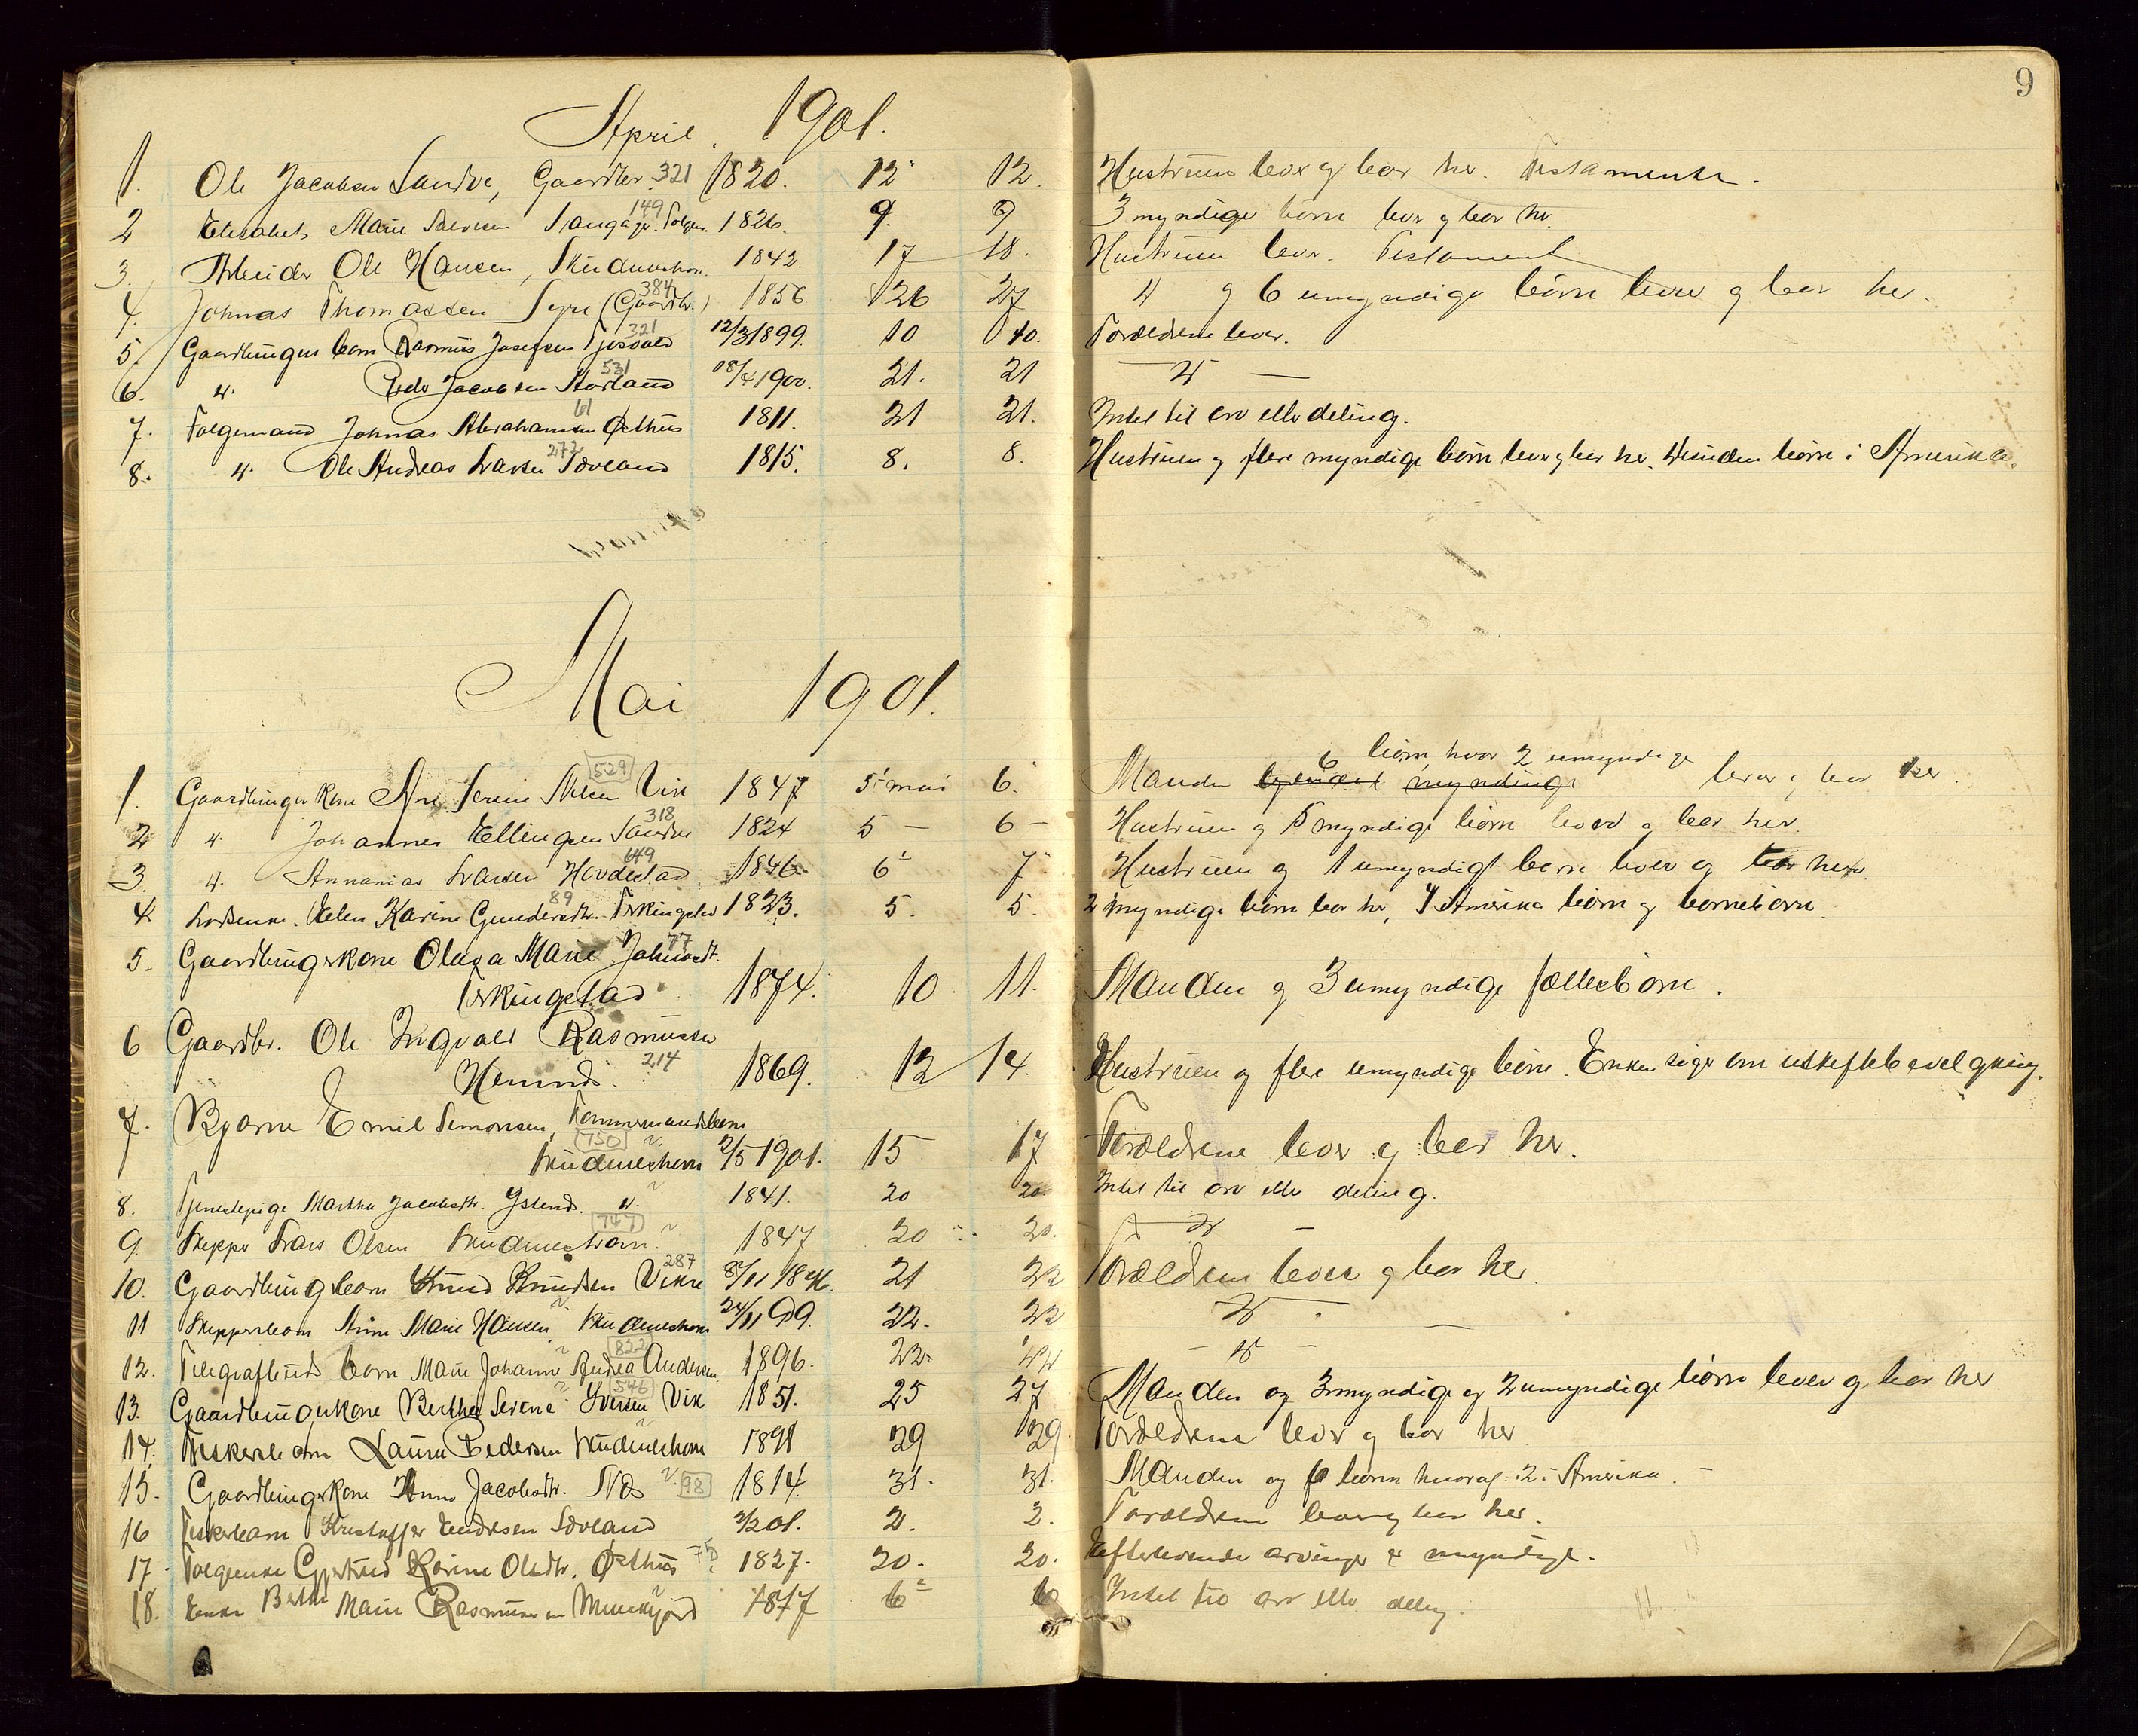 9
April 1901.
1. Ole Jacobsen Sandve, Gaardbr. 321 1820. 12 12. Hustruen lever og bor her. Testamente.
2 Elisabet Marie 149 1826. 9. 9 3 myndige börn lever og bor her.
3. Arbeider Ole Hansen, Skudeneshavn. 1842. 17 18. Hustruen lever. Testament
4. Johnas Thomassen Syre (Gaardbr.) 384 1856 26 27 " og 6 umyndige börn lever og bor her.
5. Gaardbrugers barn Rasmus Josefsen 321 12/3 1899. 10 10. Forældrene lever.
6. " Peder Jacobsen Storland 531 1900. 21. 21 — " —
7. Folgemand Johnas Abrahamsen Østhus 61 1811. 21 21. Intet til arv eller deling.
8. " Ole Andreas Larsen Sævland 272 1815. 8. 8. Hustruen og flere myndige börn lever og bor her. Desuden börn i Amerika.
Mai 1901.
6 börn, hvor 2 umyndige
1. Gaardbruger Kone Ane Serine Nilsen Vik 529 1847 5 mai 6. Manden myndige lever og bor her.
2 " Johannes Ellingsen Sandve 318 1824 5 — 6 — Hustruen og 5 myndige börn lever og bor her.
3. " Annanias Larsen Hovdestad 649 1846. 6 7 Hustruen og 1 umyndigt barn lever og bor her.
4. Lodsenke. Helen Karine Gundersdtr. Ferkingstad 89 1823. 5. 5. 2 myndige börn bor her, i Amerika börn og barnebörn.
5. Gaardbrugerkone Olava Marie Johnsdt. 77
Ferkingstad 1874. 10 11. Manden og 3 umyndige fællesbörn.
6 Gaardbr. Ole Ingvald Rasmussen
Hemnes. 214 1869. 12 14. Hustruen og flere umyndige börn. Enken söger om uskiftebevilgning.
7. Bjarne Emil Simonsen, Tømmermandsbarn
Skudeneshavn 750 2/5 1901. 15 17 Forældrene lever og bor her.
8. Tjenestepige Martha Jacobsdtr. Ystenes. " 1841. 20 20. Intet til arv eller deling.
9. Skipper Lars Olsen Skudeneshavn. 747 1847 20 20. — " —
10. Gaardbrugbarn Knud Knudsen Vikre 287 21 22 Forældrene lever og bor her.
11 Skippersbarn Anne Marie Hansen, Skudeneshavn 24/11 99. 22. 22 — " —
12. Telegrafbuds barn Marie Johanne Andrea Andersen 822 1896. 22. — " —
13. Gaardbrugerkone Berthe Serine Iversen Vik 546 1851. 25 27 Manden og 3 myndige og 2 umyndige börn lever og bor her
14. Fiskerbarn Laura Pedersen Skudeneshavn 29 29 Forældrene lever og bor her
15. Gaardbrugerkone Anna Jacobsdtr. Næs 98 1814. 31. 31. Manden og 6 börn hvoraf 2 i Amerika. —
16 Fiskerbarn Kristoffer Endresen Sævland 2. 2. Forældrene lever og bor her.
17. Folgeenke Gjertrud Karine Olsdtr. Østhus 75 1827. 20. 20. Efterlevende arvinger er myndige.
18. Enke Berthe Marie Rasmussen Munkejord 1877 6 6 Intet til arv eller deling.